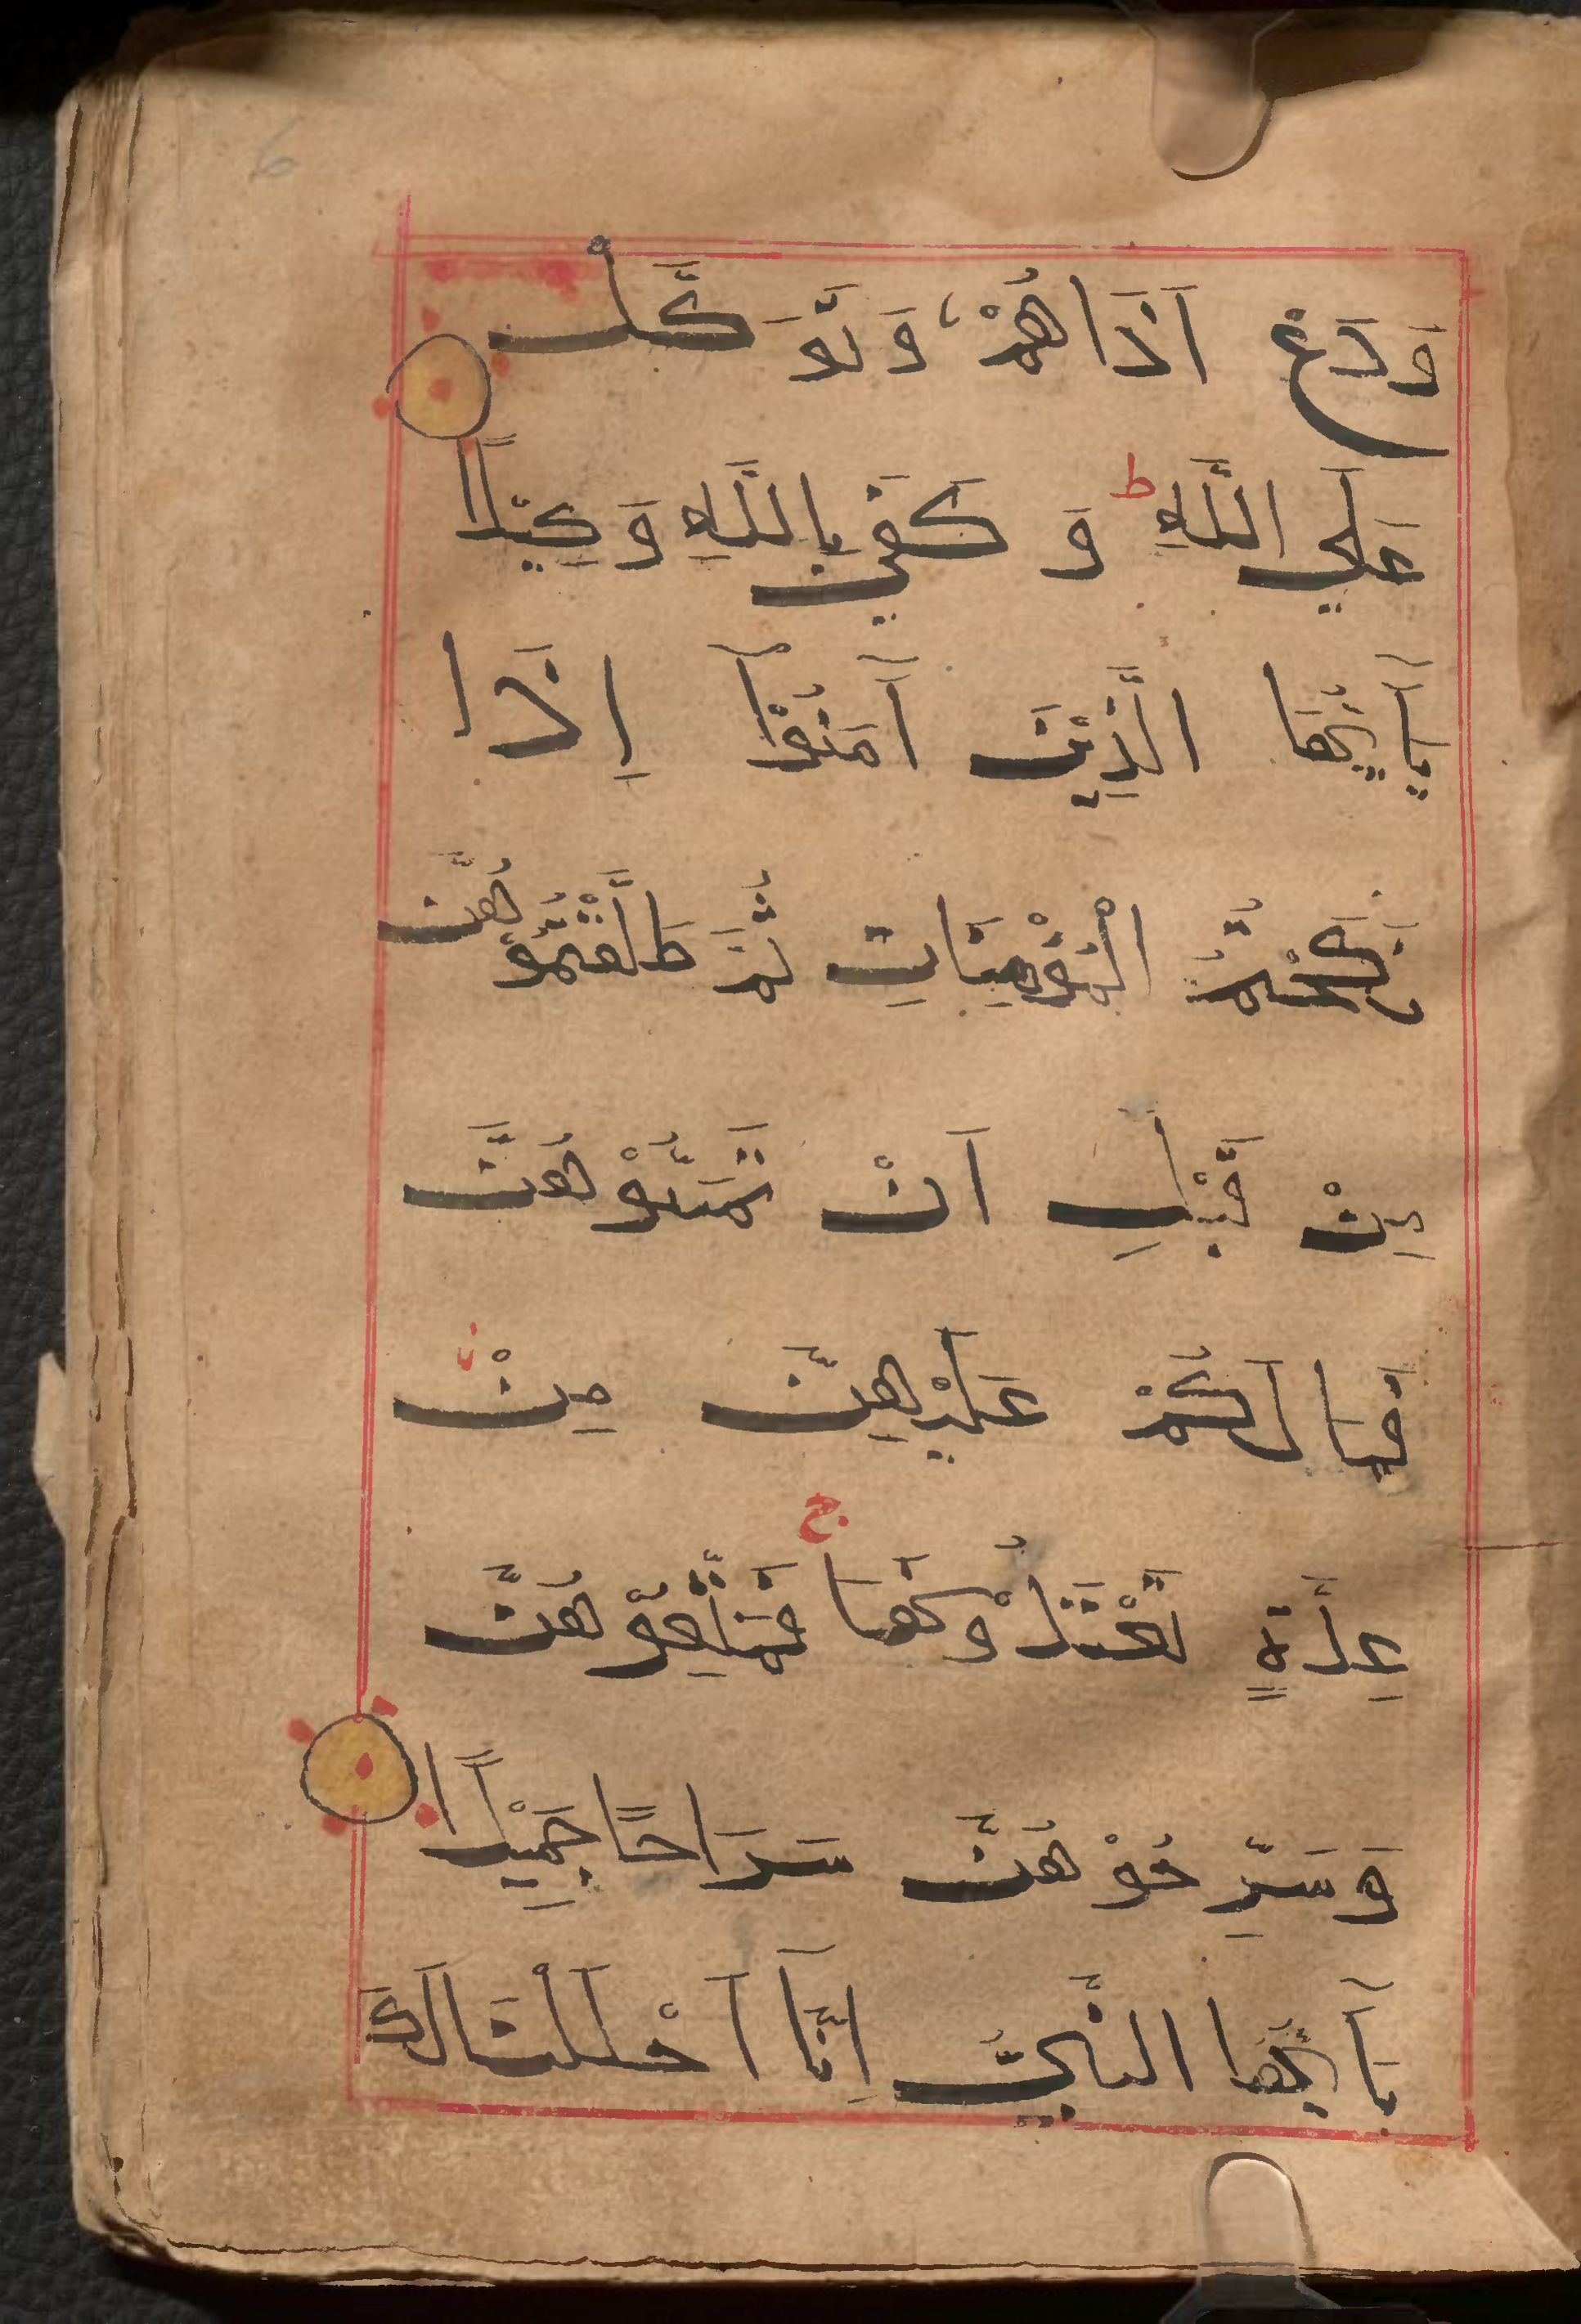 وَدَعْ اَذَاهُمْ وَتَوَكَّلْ
عَلَي اللَّهِ ط وَ كَفَي بِاللَّهِ وَكِيْلًا
يَآ اَيُّهَا الَّذِيْنَ آمَنُوْآ اِذَا
نَكَحْتُمُ الْمُؤْمِنَاتِ ثُمَّ طَلَّقْتُمُوْهُنَّ
مِنْ قَبْلِ اَنْ تَمَسُّوْهُنَّ
فَمَا لَكُمْ عَلَيْهِنَّ مِنْ
عِدَّةٍ تَعْتَدُّوْنَهَا ج فَمَتِّعُوْهُنَّ
وَسَرِّحُوْهُنَّ سَرَاحًا جَمِيْلًا
يَآ اَيُّهَا النَّبِيُّ اِنَّآ اَحْلَلْنَا لَكَ
6